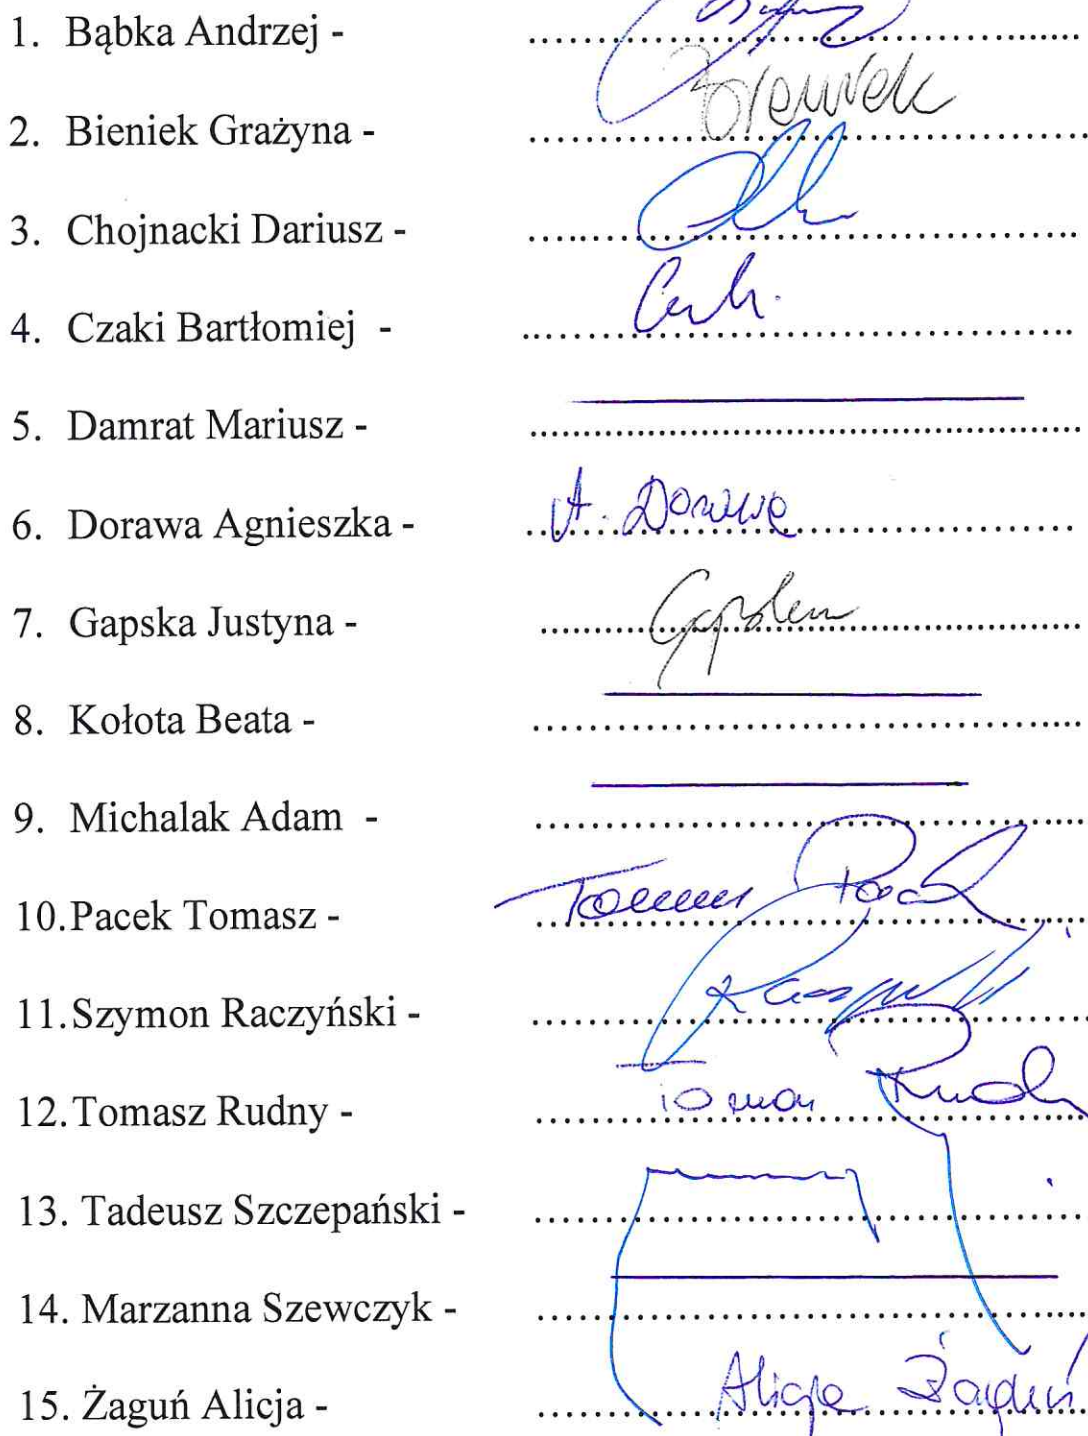 1. Bąbka Andrzej - ........................................
2. Bieniek Grażyna - ........................................
3. Chojnacki Dariusz - ........................................
4. Czaki Bartłomiej - ........................................
5. Damrat Mariusz - ........................................
6. Dorawa Agnieszka - A. Dorawa
7. Gapska Justyna - ........................................
8. Kołota Beata - ........................................
9. Michalak Adam - ........................................
10. Pacek Tomasz - ........................................
11. Szymon Raczyński - ........................................
12. Tomasz Rudny - ........................................
13. Tadeusz Szczepański - ........................................
14. Marzanna Szewczyk - ........................................
15. Żaguń Alicja - Alicja Żaguń